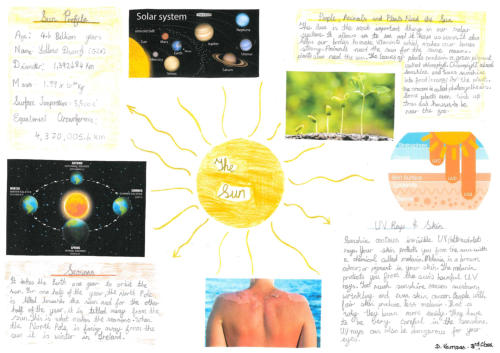 Sun Profile
Age: 4.6 Billion years
Name: Yellow Dwarf (G2V)
Diameter: 1,392,684 km
Mass: 1.99 x 10 kg
Surface Temperature: 5,500 C
Equatorial Circumference:
4,370,005.6 km
Solar system
Sun
Mercury
Venus
Earth
Mars
Jupiter
Saturn
Uranus
Neptune
People, Animals and Plants Need the Sun
The Sun is the most important thing in our solar
system. It allows us to see and it keeps us warm. It also
helps our bodies to make Vitamin D which makes our bones
strong. Animals need the sun for the same reasons.
Plants also need the sun. The leaves of plants contain a green pigment
called chlorophyll. Chlorophyll absorbs
sunshine and turns sunshine
into food energy for the plant.
This process is called photosynthesis.
Some plants even turn up
their leaves to be
near the sun.
The
Sun
AUTUMN
WINTER
SUMMER
SPRING
Seasons
It takes the Earth one year to orbit the
sun. For one half of the year the North Pole
is tilted towards the sun and for the other
half of the year it is tilted away from the
sun. This is what makes the seasons. When
the North Pole is facing away from the
sun it is winter in Ireland.
UVB
UVA
UV Rays & Skin
Sunshine contains invisible UV (ultraviolet)
rays. Your skin protects you from the sun with
a chemical called melanin. Melanin is a brown
colour or pigment in your skin. The melanin
protects you from the sun's harmful UV
rays. Too much sunshine causes sunburn,
wrinkling and even skin cancer. People with
fair skin makes less melanin that is
why they burn more easily. They have
to be very careful in the sunshine.
UV rays can also be dangerous for your
eyes.
3rd Class